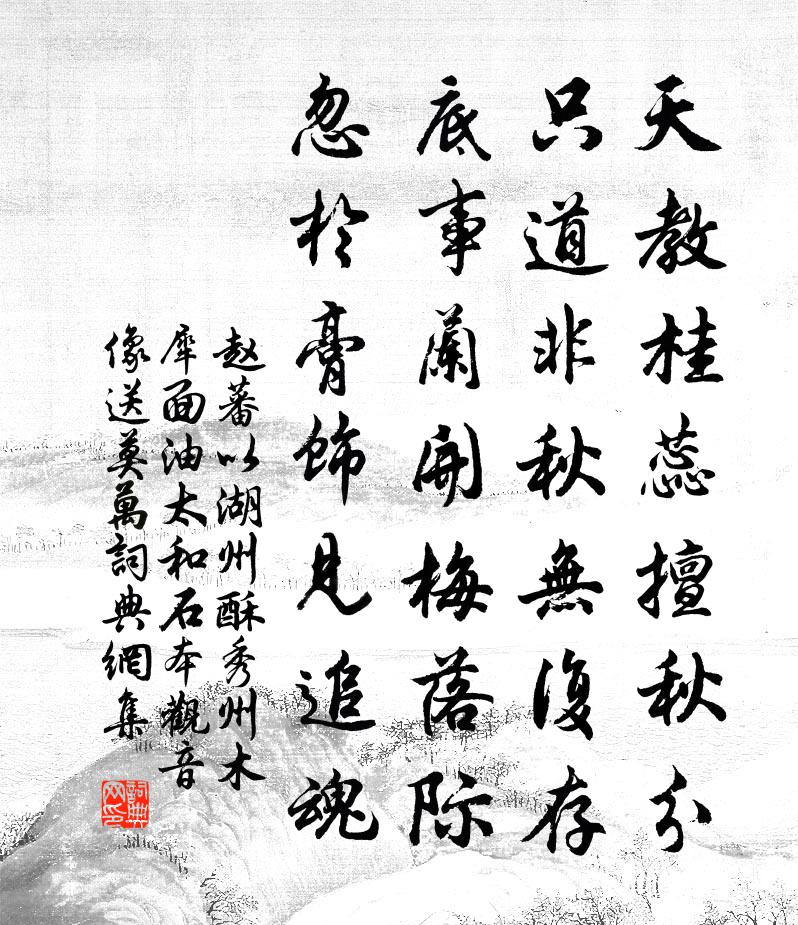 天教桂蕊擅秋分
只道非秋無復存
底事蘭開梅落际
忽於膏飾見追魂
赵蕃以湖州酥秀州木
犀面油太和石本觀音
像送莫萬詞典網集
詞典网印